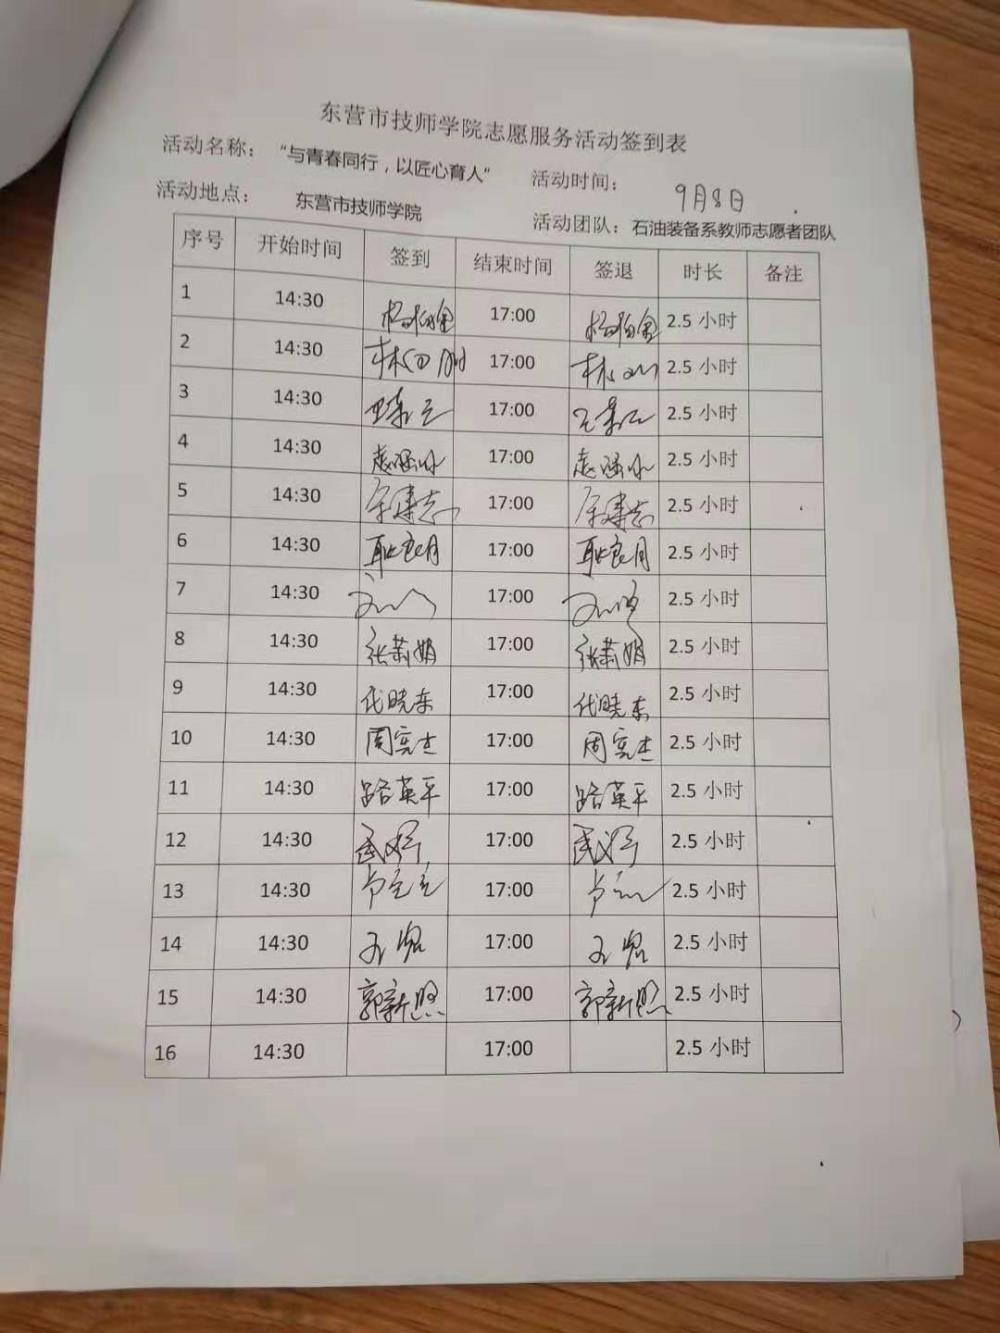 东营市技师学院志愿服务活动签到表
活动名称： “与青春同行，以匠心育人” 活动时间： 9月8日
活动地点： 东营市技师学院 活动团队：石油装备系教师志愿者团队
序号 开始时间 签到 结束时间 签退 时长 备注
1 14:30 17:00 2.5 小时
2 14:30 17:00 2.5 小时
3 14:30 17:00 2.5 小时
4 14:30 17:00 2.5 小时
5 14:30 17:00 2.5 小时
6 14:30 耿良月 17:00 耿良月 2.5 小时
7 14:30 17:00 2.5 小时
8 14:30 张萧娟 17:00 张萧娟 2.5 小时
9 14:30 代晓东 17:00 代晓东 2.5 小时
10 14:30 周宪杰 17:00 周宪杰 2.5 小时
11 14:30 路英平 17:00 路英平 2.5 小时
12 14:30 17:00 2.5 小时
13 14:30 17:00 2.5 小时
14 14:30 17:00 2.5 小时
15 14:30 郭新照 17:00 郭新照 2.5 小时
16 14:30 17:00 2.5 小时